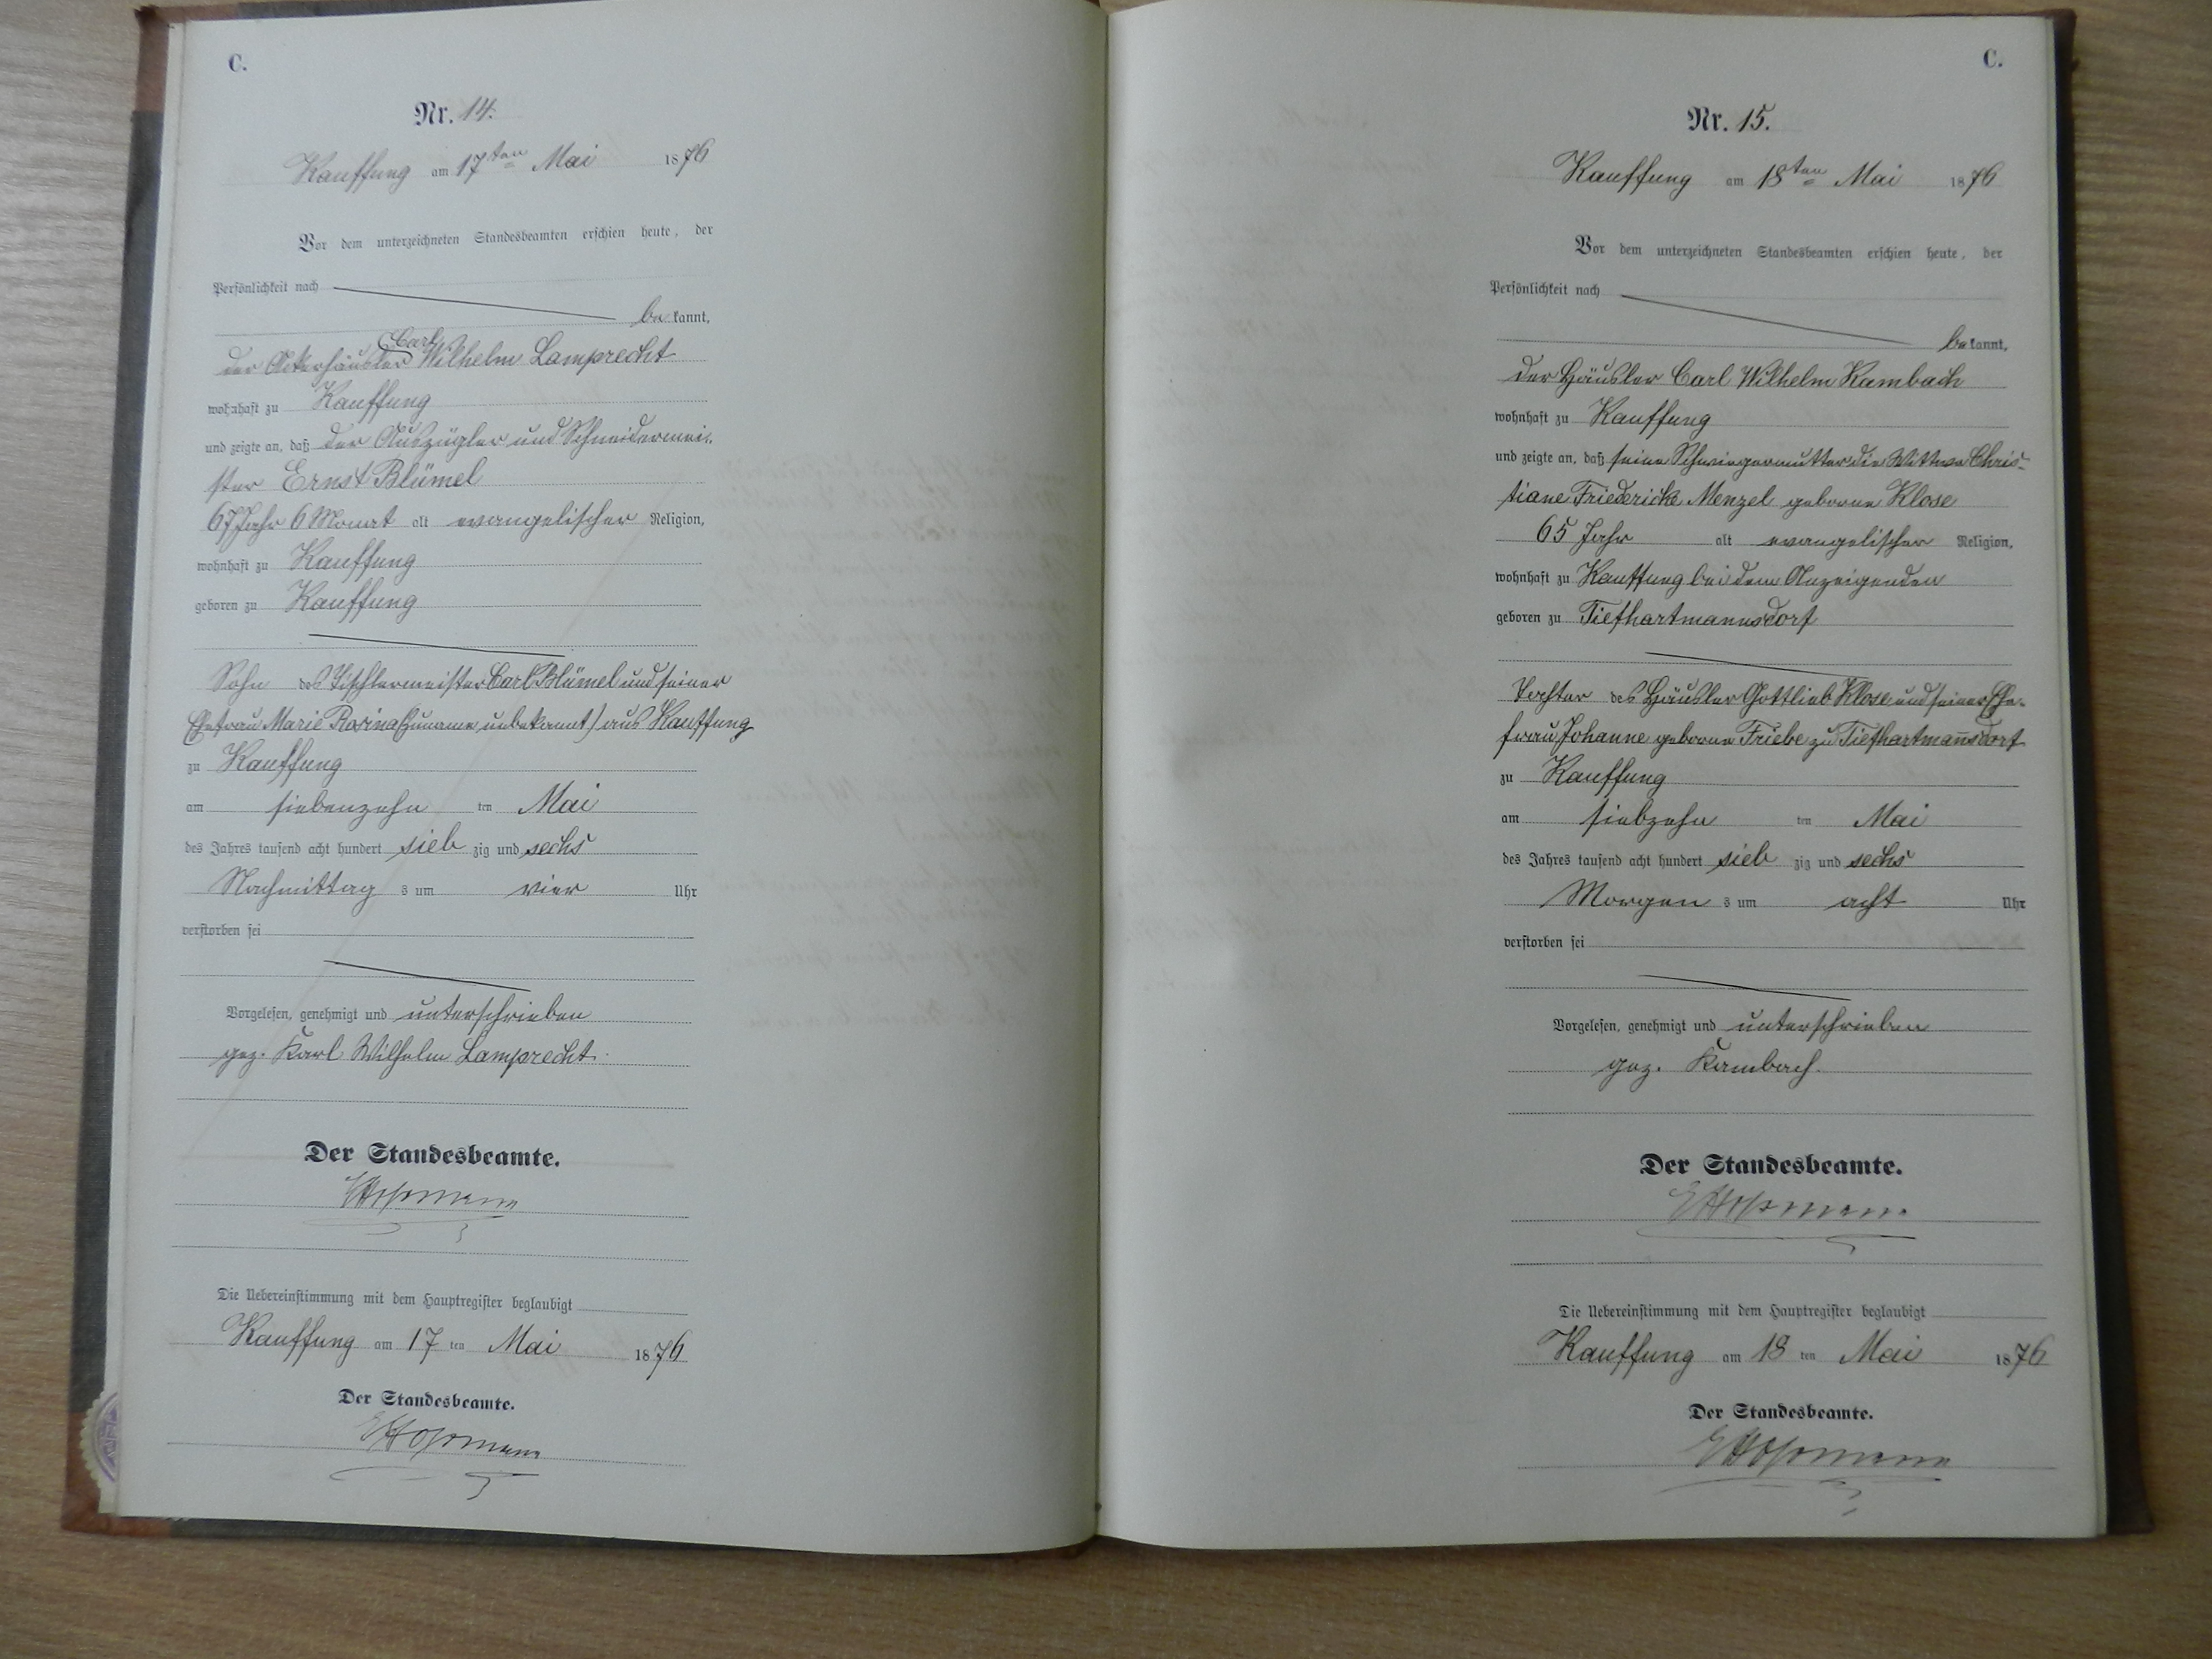 C.
Nr. 14.
Kauffung am 17ten Mai 1876
Vor dem unterzeichneten Standesbeamten erschien heute, der
Persönlichkeit nach
be kannt,
Carl
der Ackerhäusler Wilhelm Lamprecht
wohnhaft zu Kauffung
und zeigte an, daß der Auszügler und Schneidermei-
ster Ernst Blümel
67 Jahr 6 Monat alt evangelischer Religion,
wohnhaft zu Kauffung
geboren zu Kauffung
Sohn des Tischlermeister Carl Blümel und seiner
Ehefrau Marie Rosina (Zuname unbekannt) aus Kauffung
zu Kauffung
am siebenzehn ten Mai
des Jahres tausend acht hundert sieb zig und sechs
Nachmittag s um vier Uhr
verstorben sei
Vorgelesen, genehmigt und unterschrieben
gez. Karl Wilhelm Lamprecht.
Der Standesbeamte.
Die Uebereinstimmung mit dem Hauptregister beglaubigt
Kauffung am 17 ten Mai 1876
Der Standesbeamte.
C.
Nr. 15.
Kauffung am 18ten Mai 1876
Vor dem unterzeichneten Standesbeamten erschien heute, der
Persönlichkeit nach
be kannt,
der Häusler Carl Wilhelm Kambach
wohnhaft zu Kauffung
und zeigte an, daß seine Schwiegermutter die Wittwe Chris-
tiane Friedericke Menzel geborne Klose
65 Jahr alt evangelischer Religion,
wohnhaft zu Kauffung bei dem Anzeigenden
geboren zu Tiefhartmannsdorf
Tochter des Häusler Gottlieb Klose und seiner Ehe-
frau Johanne geborne Friebe zu Tiefhartman̄sdorf
zu Kauffung
am siebzehn ten Mai
des Jahres tausend acht hundert sieb zig und sechs
Morgen s um acht Uhr
verstorben sei
Vorgelesen, genehmigt und unterschrieben
gez. Kambach.
Der Standesbeamte.
Die Uebereinstimmung mit dem Hauptregister beglaubigt
Kauffung am 18 ten Mai 1876
Der Standesbeamte.